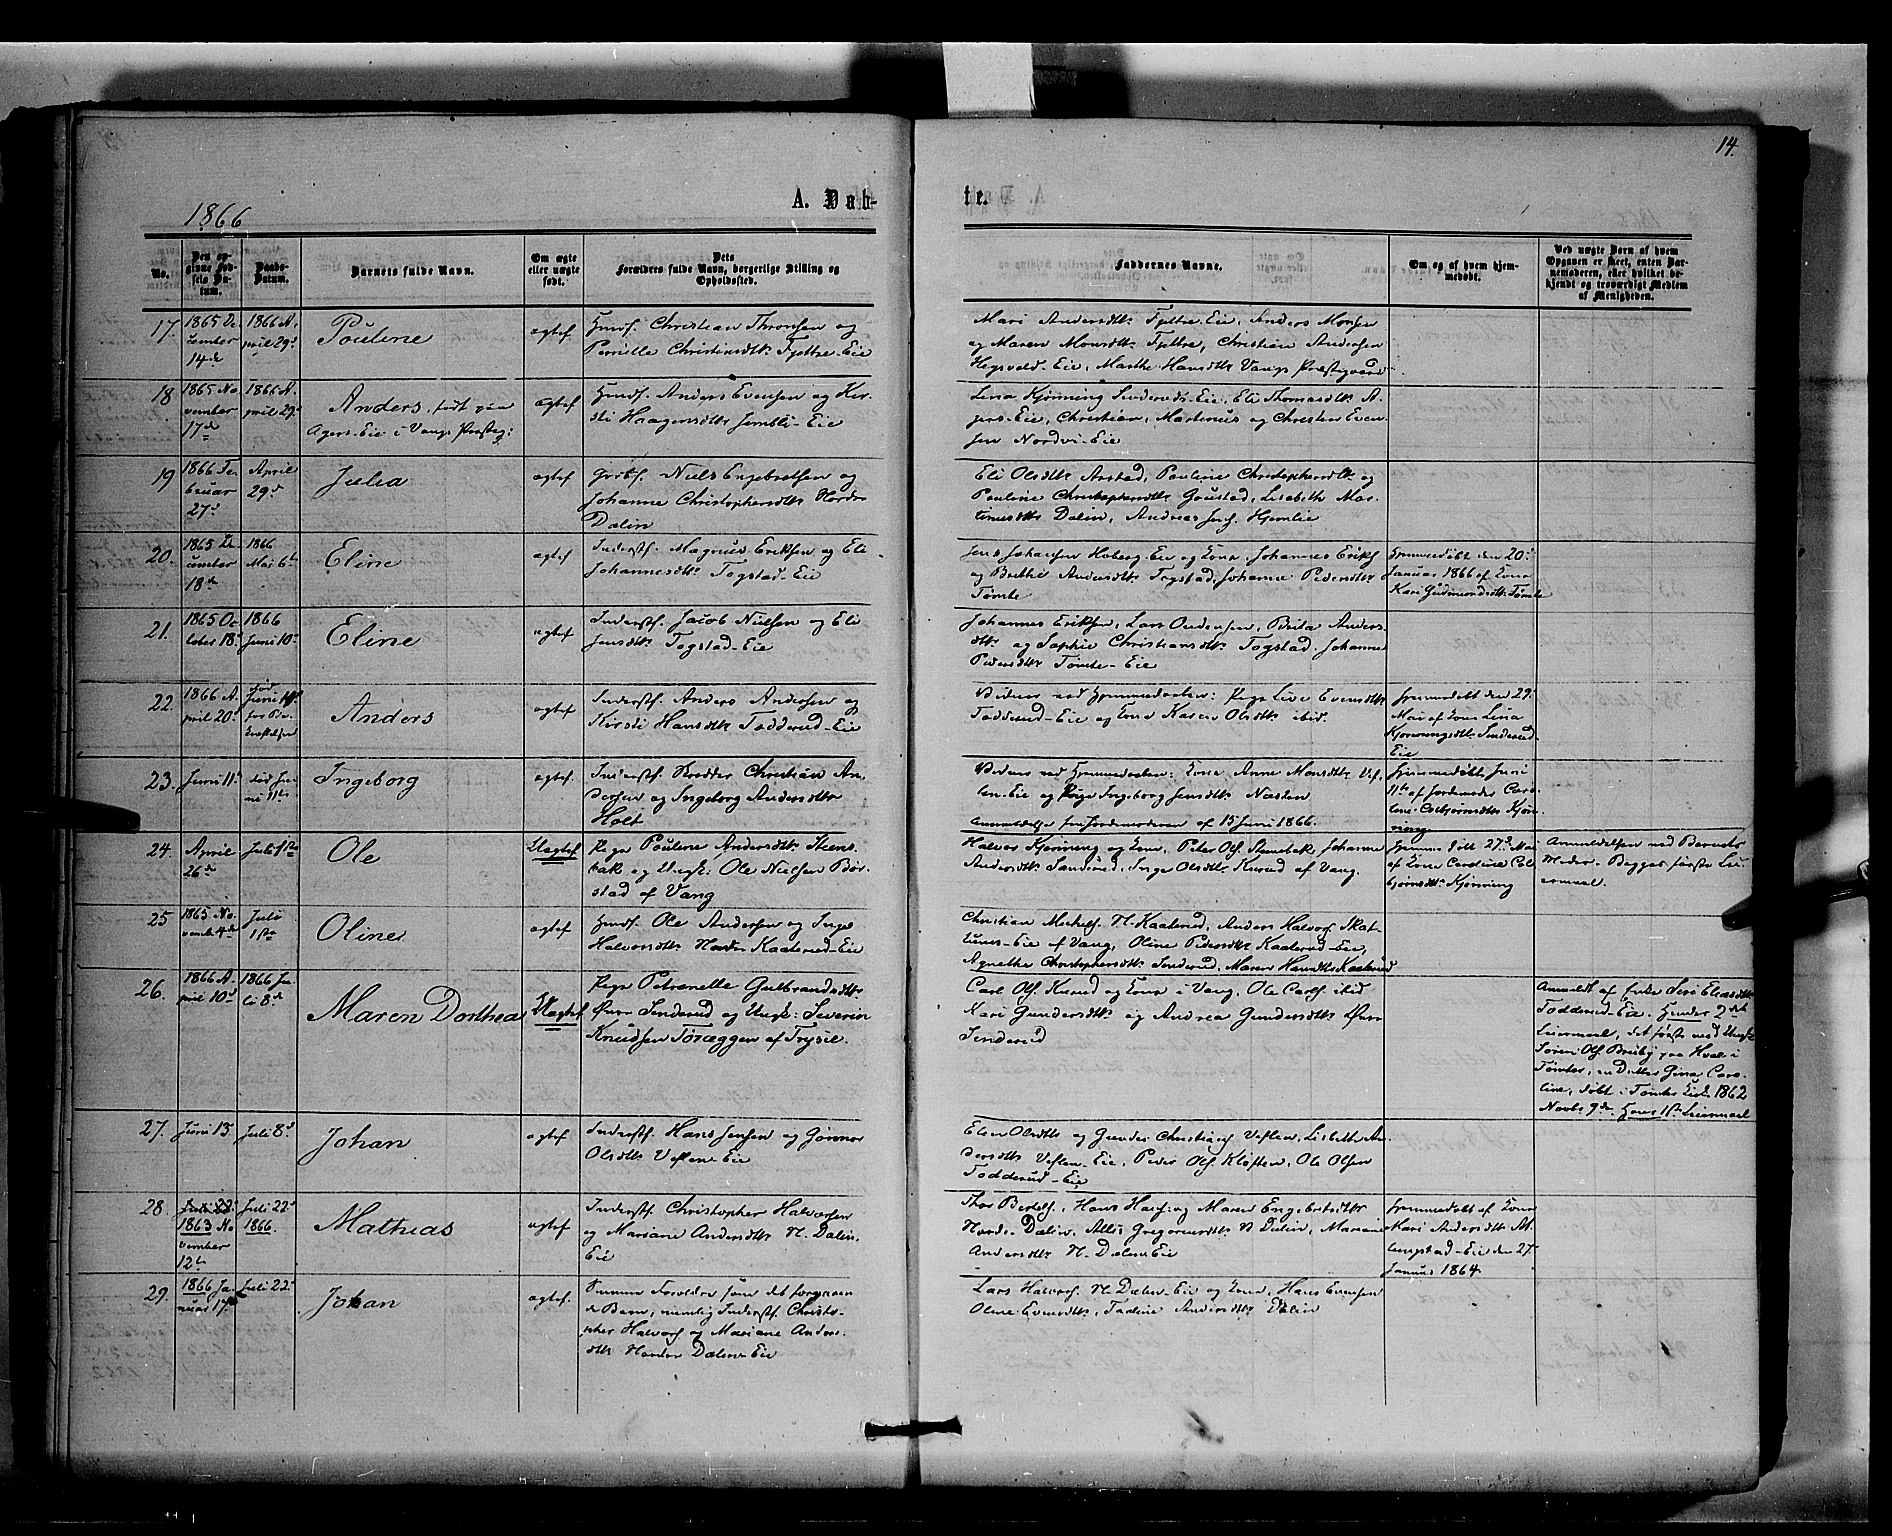 14.
1866
A. Døb-
te.
No.
Den op-
givne Fød-
sels Da-
tum.
Daabs-
Datum.
Barnets fulde Navn.
Om ægte
eller uægte
født.
Dets
Forældres fulde Navn, borgerlige Stilling og
Opholdssted.
Faddernes Navne.
Om og af hvem hjem-
medøbt.
Ved uægte Barn af hvem
Opgaven er skeet, enten Bar-
nemoderen, eller hvilket be-
kjendt og troværdigt Medlem
af Menigheden.
17.
1865 De
cember
14de
1866 A.
pril 29d
Pouline
ægtef
Huusf. Christian Thronsen og
Pernille Christiansdtr. Fjettre-Eie
Mari Andersdtr. Fjettre-Eie, Anders Monsen
og Maren Monsdtr. Fjettre, Christian Andersen
Hegsvold-Eie, Marthe Hansdtr. Vangs Præstegaard
18
1865 No
vember
17de
1866 A.
pril 29d
Anders, født paa
Agers-Eie i Vangs Præsteg:
ægtef
Huusf. Anders Evensen og Ker-
sti Haagensdtr. Jembli-Eie
Lena Kjønning Sinderuds-Eie, Eli Thomasdtr. A-
gers-Eie, Christian, Martinus og Christen Even
sen Nordvi-Eie
19
1866 Fe
bruar
27d
April
29d
Julia
ægtef
Grbf. Niels Engebretsen og
Johanne Christophersdtr. Nordre
Dælin
Eli Olsdtr. Arstad, Pauline Christophersdtr. og
Pauline Christophersdtr. Goustad, Lisabeth Mar-
tinusdtr. Dælin, Andreas Hjemlie
20.
1865 De
cember
18de
1866
Mai 6te
Eline
ægtef
Inderstf. Magnus Eriksen og Eli
Johannesdtr. Togstad-Eie
Jens Johansen Hoberg-Eie og Kona, Johannes Eriks
og Berthe Andersdtr. Togstad, Johanne Pedersdtr
Tomte
Hjemmedøbt den 20d
Januar 1866 af Kona
Kari Gudmundsdtr. Tomte
21.
1865 Oc
tober 18d
1866
Juni 10d
Eline
ægtef
Inderstf. Jacob Nielsen og Eli
Jensdtr. Togstad-Eie
Johannes Eriksen, Lars Andersen, Berta Anders-
dtr. og Sophie Christiansdtr. Togstad, Johanne
Pedersdtr Tomte-Eie
22.
1866 A.
pril 20d
død
Juni
for Be-
kræftelsen
Anders
ægtef
Inderstf. Anders Andersen og
Kirsti Hansdtr. Todderud-Eie
Vidner ved Hjemmedaaben: Pige Live Evensdtr
Todderud-Eie og Kona Karen Olsdtr. ibid.
Hjemmedøbt den 29.
Mai af Kona Lina
Kjønningsdtr. Sinderud-
Eie
23.
Juni 11te
død Ju-
ni 11te
Ingeborg
ægtef
Inderstf. Skrædder Christian An-
dersen og Ingeborg Andersdtr.
Holt
Vidner ved Hjemmedaaben: Kona Anne Monsdtr. Vef-
len-Eie og Pige Ingeborg Jensdtr Næsten
Anmeldelse fra Jordemoderen af 15 Juni 1866.
Hjemmedøbt Juni
11te af Jordemoder Caro-
line Colbjørnsdtr. Kjøn-
ning
24.
April
26de
Juli 1ste
Ole
Uægtef
Pige Pouline Andersdtr. Steens-
bak og Ungk: Ole Nielsen Bør-
stad af Vang
Halvor Kjønning og Kona, Peter Ols. Steensbak, Johanne
Andersdtr. Sinderud, Inge Olsdtr. Knrud af Vang.
Hjemmedøbt 27d Mai
af Kona Caroline Col-
bjørnsdtr Kjønning
Anmeldelsen ved Barnets
Moder. Begges første Lei-
ermaal.
25
1865 No
vemb. 4de
Juli
1ste
Oline
ægtef
Huusf. Ole Andersen og Inge
Halvorsdtr. Nordre Kaaterud-Eie
Christian Mickels. N. Kaaterud, Anders Halvors. Skat-
tums-Eie af Vang, Oline Pedersdtr. Kaaterud-Eie,
Agnethe Christophersdtr. Sinderud, Maren Hansdtr. Kaaterud
26.
1866 A.
pril 10d
1866 Ju-
li 8de
Maren Dorthea
Uægtef
Pige Petronelle Gulbrandsdtr.
Øvre Sinderud og Ungk: Severin
Knudsen Toræggen af Trysil.
Carl Ols. Knrud og Kona i Vang, Ole Carls. ibid
Kari Gundersdtr. og Andrea Gundersdtr. Øvre
Sinderud
Anmeldt af Enke Siri Eliasdtr
Todderud-Eie. Hendes 2det
Leiermaal, det første med Ungk.
Søren Ols. Bruby paa Hval i
Tomter, en Datter Gina Caro-
line, døbt i Tomter Kirke 1862
Novbr 9de. Hans 1ste Leiermaal
27.
Juni 15
Juli 8d
Johan
ægtef
Inderstf. Hans Jensen og Gonnor
Olsdtr. Veflen-Eie
Elen Olsdtr og Gunder Christians. Veflen, Lisbeth An-
dersdtr Veflen-Eie, Peder Ols. Kloften, Ole Olsen
Todderud-Eie
28.
1863 No
vember
12te
Juli 22d
1866.
Mathias
ægtef
Inderstf. Christopher Halvorsen
og Mariane Andersdtr. N. Dælin-
Eie
Thor Bertels., Hans Hans. og Maren Engebretsdtr
Nordre Dælin, Alis Gregoriusdtr N. Dælin, Mariane
Andersdtr. N. Dælin-Eie
Hjemmedøbt af Kona
Mari Andersdtr. At-
lungstad-Eie den 27.
Januar 1864.
29.
1866 Ja-
nuar 17de
Juli 22d
Johan
ægtef.
Samme Forældre som det foregaaen
de Barn, nemlig Inderstf. Christo-
pher Halvors. og Mariane Anders-
dtr Nordre Dælin-Eie
Lars Halvors. N. Dælin-Eie og Kona, Hans Evensen
Oline Evensdtr., Tadine Andersdtr. Dælin